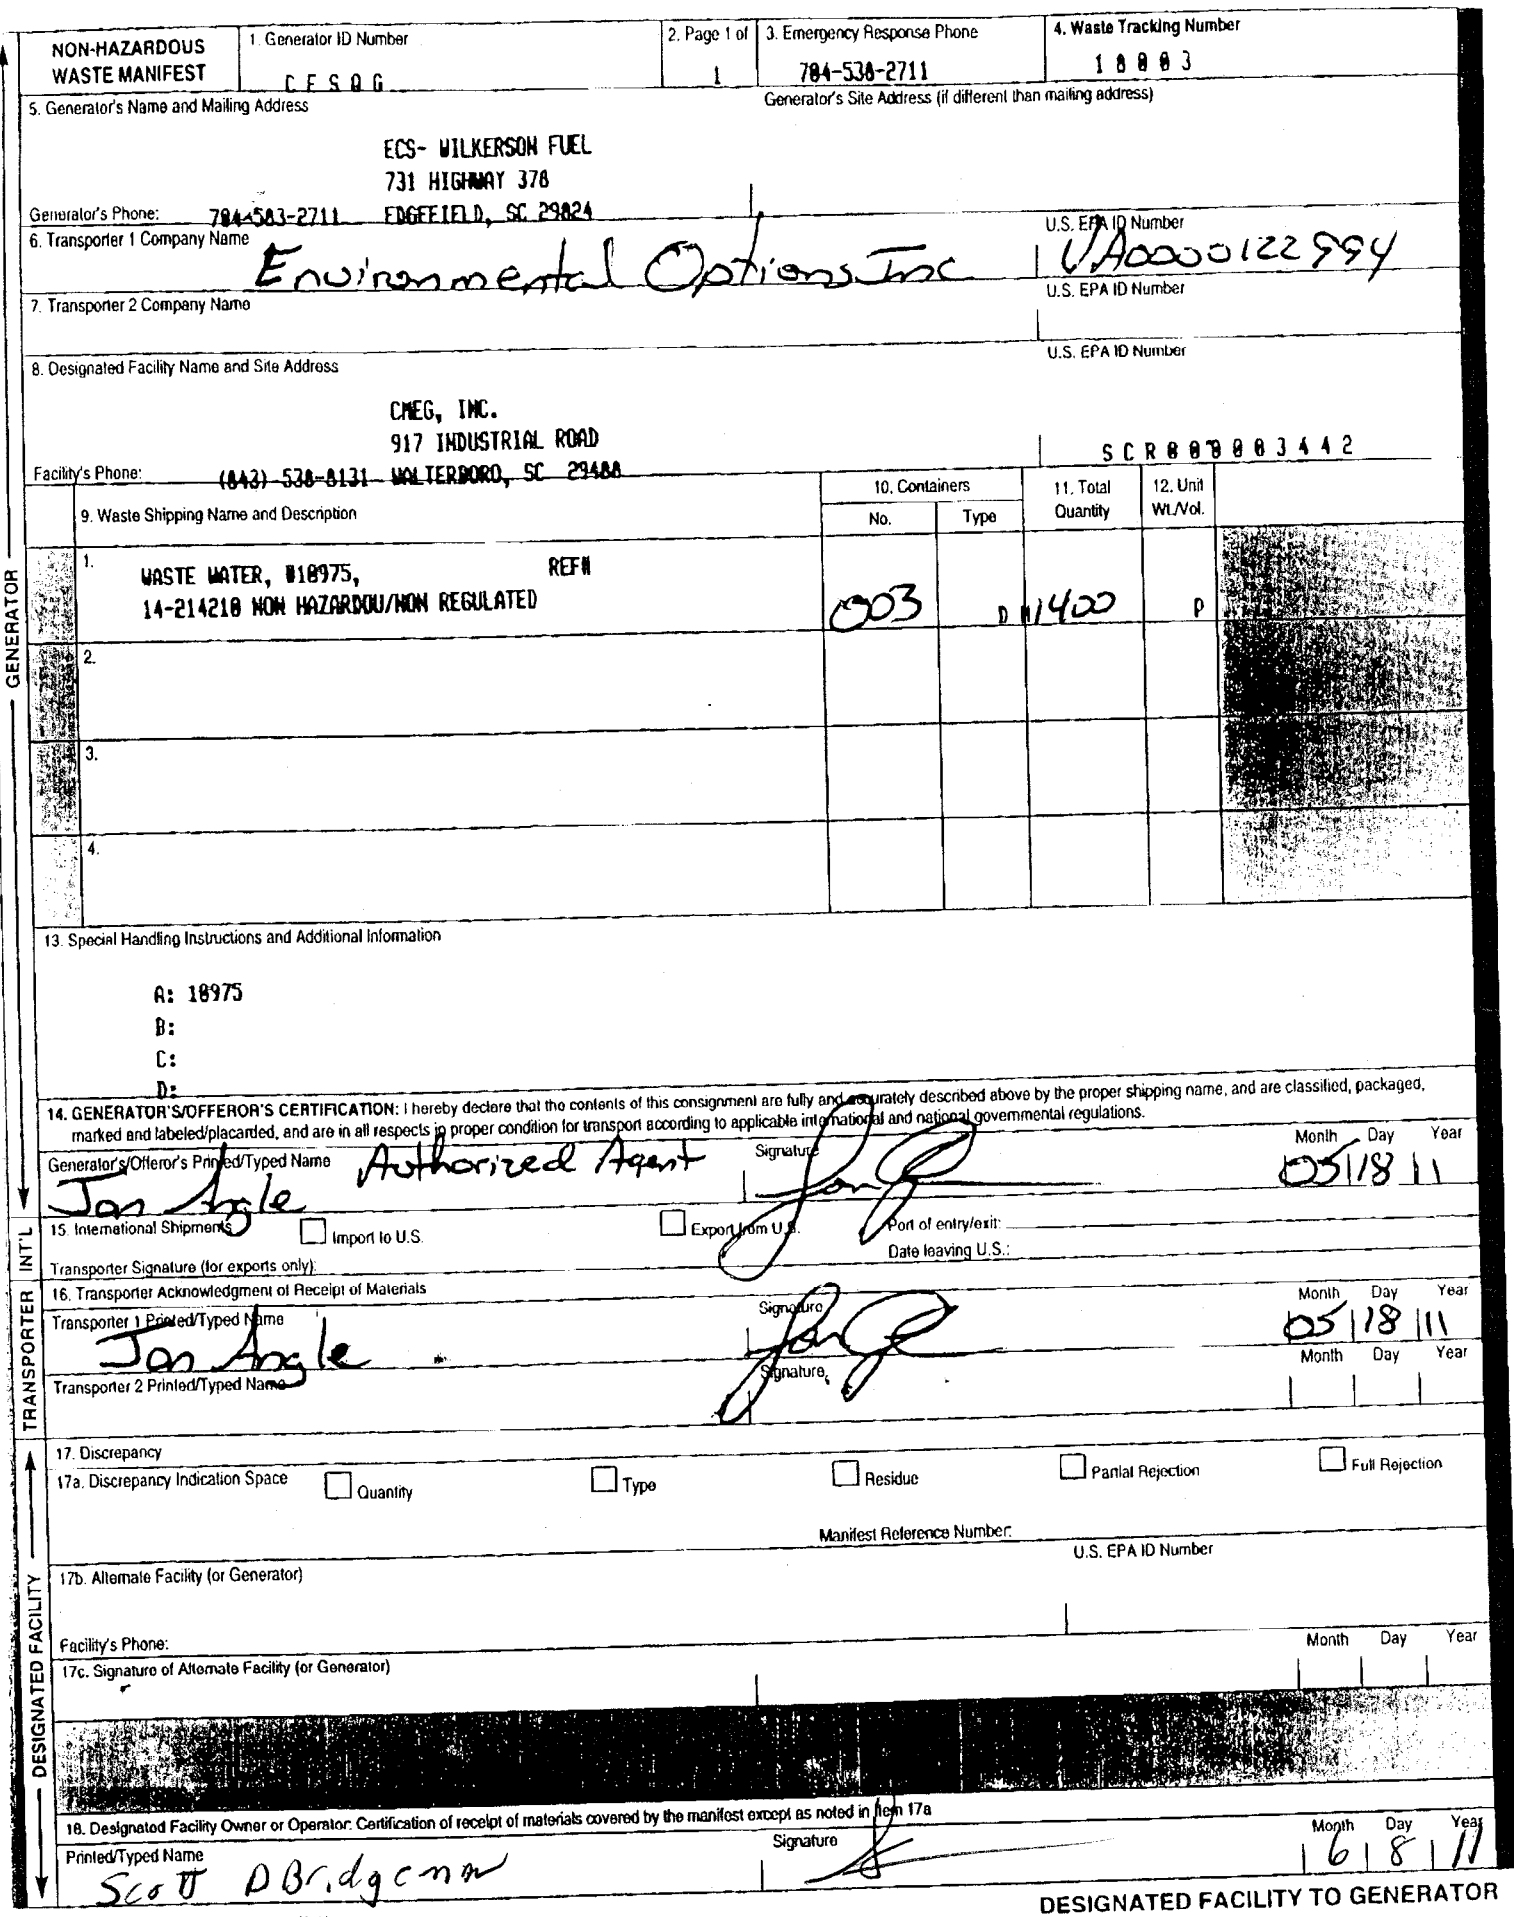 NON-HAZARDOUS
WASTE MANIFEST
1. Generator ID Number
CESQG
2. Page 1 of
1
3. Emergency Response Phone
704-538-2711
4. Waste Tracking Number
5. Generator's Name and Mailing Address
Generator's Site Address (if different than mailing address)
ECS- WILKERSON FUEL
731 HIGHWAY 378
Generator's Phone: 704-583-2711 EDGEFIELD, SC 29824
6. Transporter 1 Company Name
Environmental Options Inc
U.S. EPA ID Number
VA0000122994
7. Transporter 2 Company Name
U.S. EPA ID Number
8. Designated Facility Name and Site Address
U.S. EPA ID Number
CMEG, INC.
917 INDUSTRIAL ROAD
SCR000003442
Facility's Phone: (843)-538-8131 WALTERBORO, SC 29488
9. Waste Shipping Name and Description
10. Containers
No.
Type
11. Total
Quantity
12. Unit
Wt./Vol.
1.
WASTE WATER, #18975, REF#
14-214218 NON HAZARDOU/NON REGULATED
003
D M
1400
P
2.
3.
4.
13. Special Handling Instructions and Additional Information
A: 18975
B:
C:
D:
14. GENERATOR'S/OFFEROR'S CERTIFICATION: I hereby declare that the contents of this consignment are fully and accurately described above by the proper shipping name, and are classified, packaged,
marked and labeled/placarded, and are in all respects in proper condition for transport according to applicable international and national governmental regulations.
Generator's/Offeror's Printed/Typed Name
Authorized Agent
Jon Angle
Signature
Month Day Year
05 18 11
15. International Shipments
Import to U.S.
Export from U.S.
Port of entry/exit:
Date leaving U.S.:
Transporter Signature (for exports only):
16. Transporter Acknowledgment of Receipt of Materials
Transporter 1 Printed/Typed Name
Jon Angle
Signature
Month Day Year
05 18 11
Transporter 2 Printed/Typed Name
Signature
Month Day Year
17. Discrepancy
17a. Discrepancy Indication Space
Quantity
Type
Residue
Partial Rejection
Full Rejection
Manifest Reference Number:
17b. Alternate Facility (or Generator)
U.S. EPA ID Number
Facility's Phone:
17c. Signature of Alternate Facility (or Generator)
Month Day Year
18. Designated Facility Owner or Operator: Certification of receipt of materials covered by the manifest except as noted in Item 17a
Printed/Typed Name
Scott D
Signature
Month Day Year
6 8 11
DESIGNATED FACILITY TO GENERATOR
GENERATOR
INT'L
TRANSPORTER
DESIGNATED FACILITY